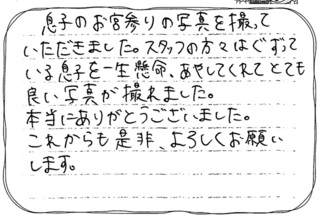 息子のお宮参りの写真を撮って
いただきました。スタッフの方々はぐずって
いる息子を一生懸命、あやしてくれてとても
良い写真が撮れました。
本当にありがとうございました。
これからも是非、よろしくお願い
します。